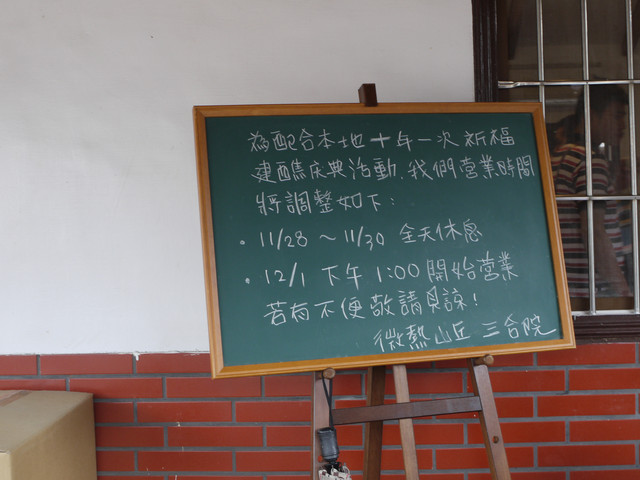 為配合本地十年一次祈福
建醮庆典活動，我們营業時間
將調整如下：
．11/28 ～ 11/30 全天休息
．12/1 下午 1:00 開始营業
若有不便敬請見諒！
微熱山丘 三合院